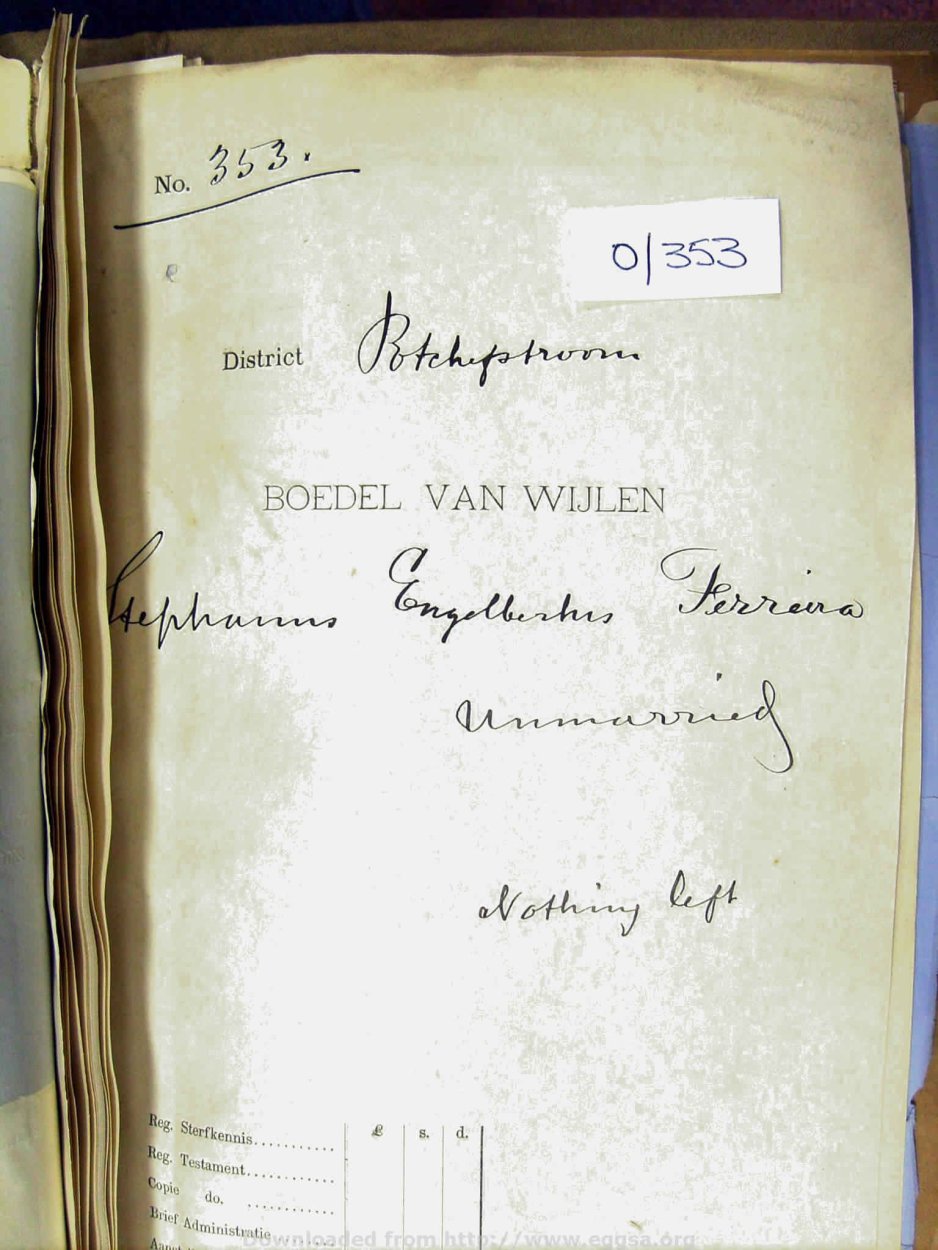 No. 353.
0/353
District Potchefstroom
BOEDEL VAN WIJLEN
Stephanus Engelbertus Ferreira
Unmarried
Nothing left
£ s. d.
Reg. Sterfkennis............
Reg. Testament............
Copie do. ............
Brief Administratie............
Downloaded from http://www.eggsa.org